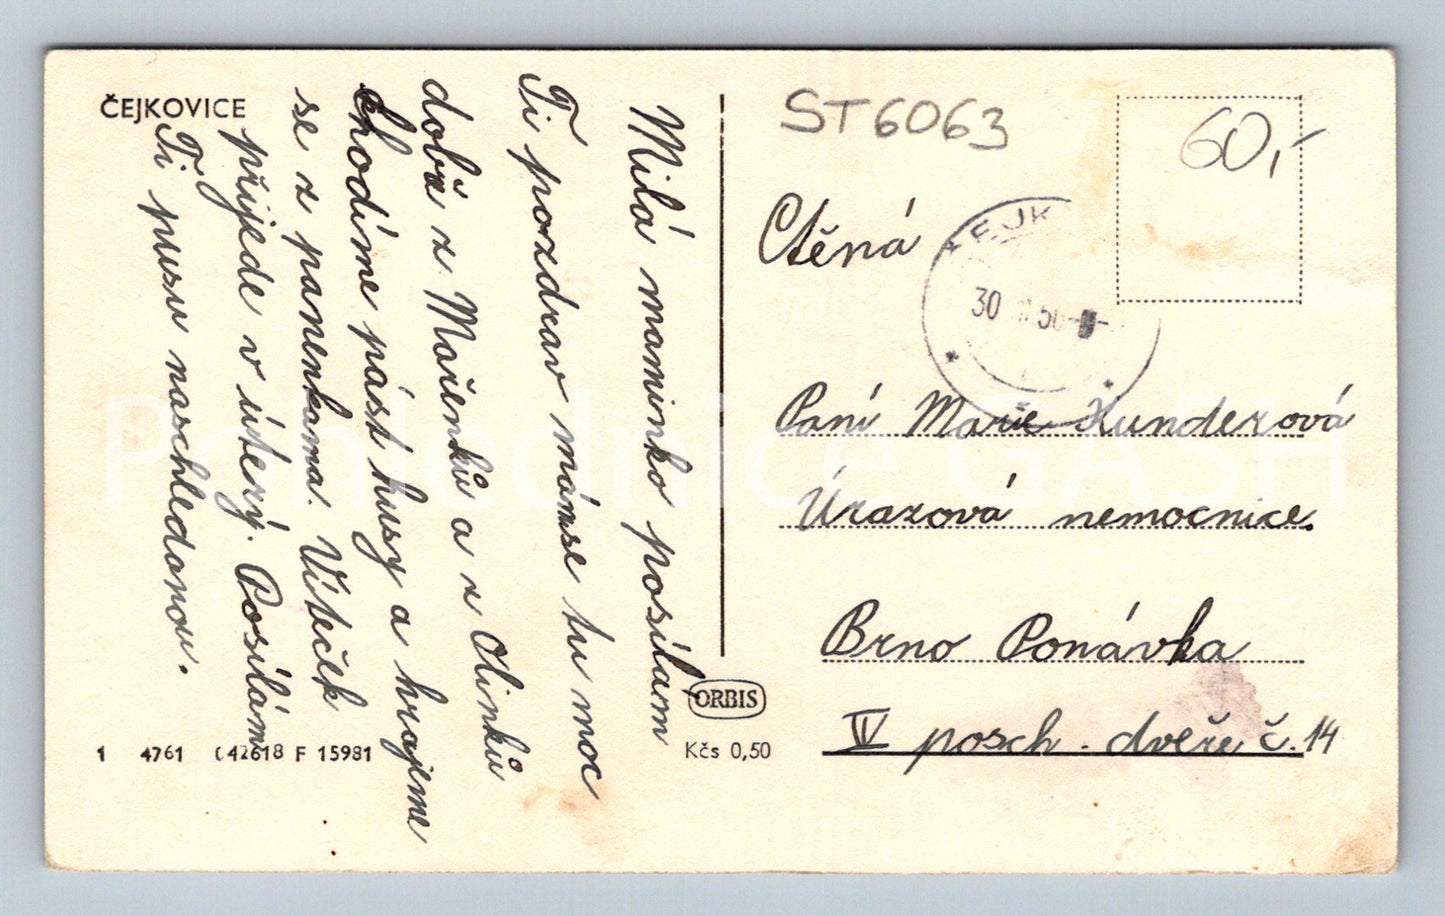 ČEJKOVICE
Milá maminko posílám
Ti pozdrav máme se tu moc
dobř z Mařenků a z Olinků
chodíme pást husy a hrajeme
se z panenkama. Víteček
přijede v úterý. Posílám
Ti pusu naschledanou.
1 4761 (42618 F 15981
ORBIS
Kčs 0,50
ST6063
60,-
ČEJK
30 50
Ctěná
Paní Marie Kunderová
Úrazová nemocnice.
Brno Ponávka
IV posch. dveře č. 14
Pohlednice GASH